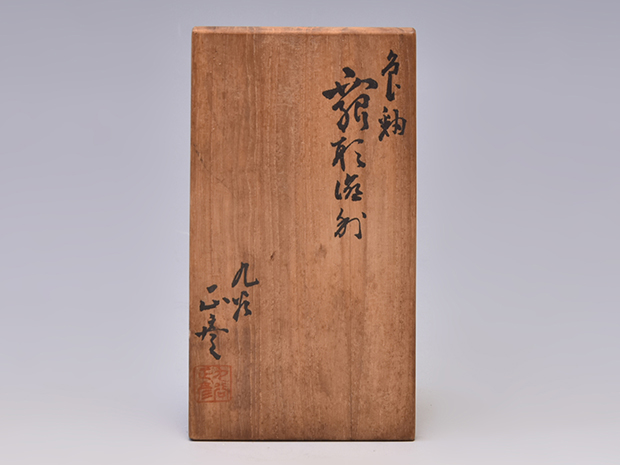 色釉
瓢形徳利
九谷
正彦